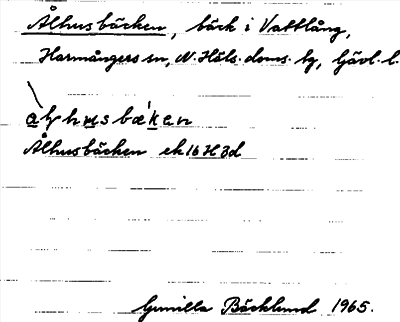 Ålhusbäcken, bäck i Vattlång,
Harmångers sn, N. Häls. doms. tg, Gävl. l.
Ålhusbäcken ek 16 H 3d
Gunilla Bäcklund 1965.